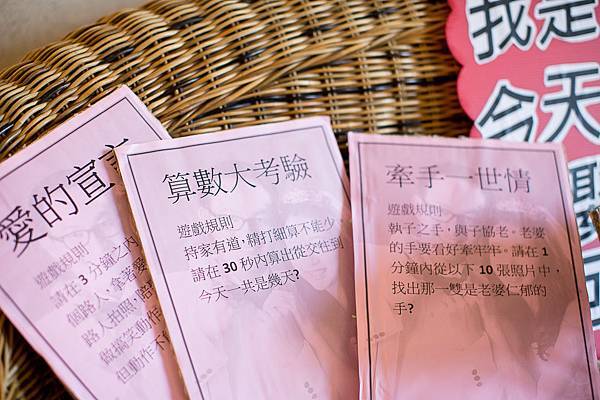 愛的宣言
遊戲規則
請在 3 分鐘之內
個路人、拿著愛
路人拍照，陪
做搞笑動作
但動作不
算數大考驗
遊戲規則
持家有道，精打細算不能少
請在 30 秒內算出從交往到
今天一共是幾天?
牽手一世情
遊戲規則
執子之手，與子協老。老婆
的手要看好牽牢牢。請在 1
分鐘內從以下 10 張照片中，
找出那一雙是老婆仁郁的
手?
我是
今天